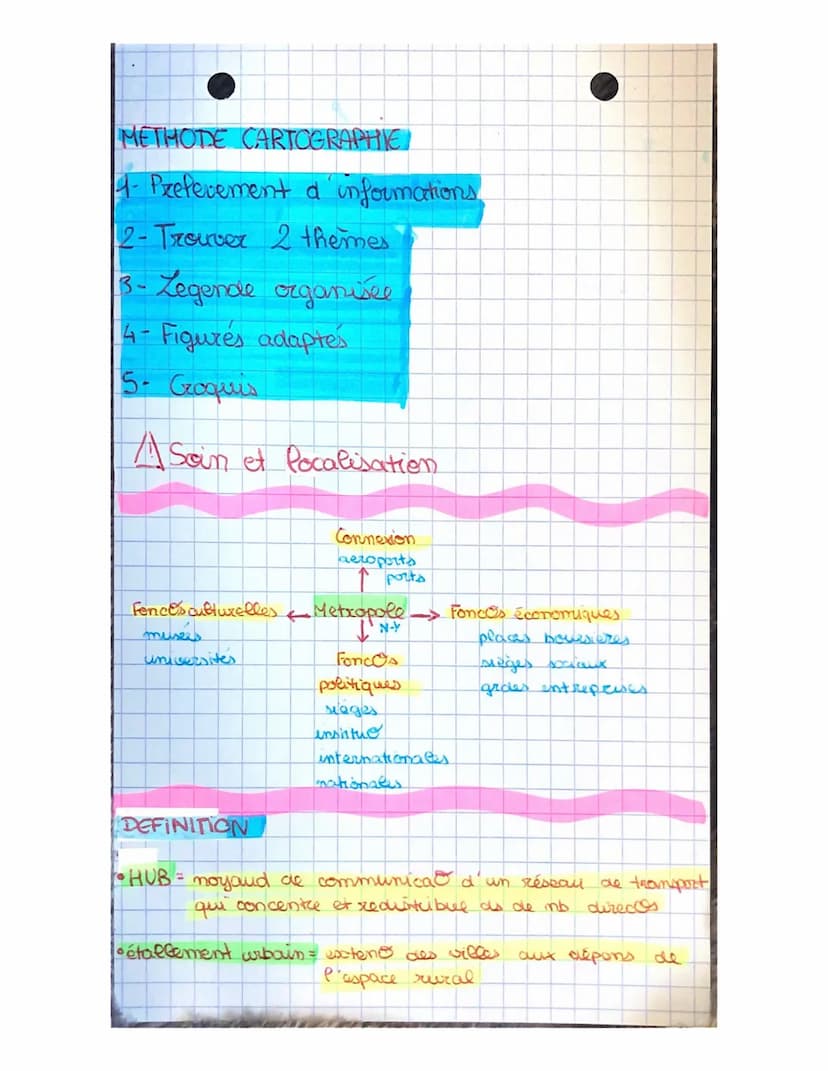 METHODE CARTOGRAPHIE
1- Prelevement d'informations
2- Trouver 2 thèmes
3- Legende organisée
4- Figurés adaptés
5- Croquis
⚠ Soin et localisation
Connexion
aeroports
ports
Foncº culturelles ← Metropole → Foncºs économiques
N-Y
musés
universités
places boursieres
sièges sociaux
grdes entreprises
Foncºs
politiques
sièges
institutº
internationales
nationales
DEFINITION
• HUB = noyaud de communicatº d'un réseau de transport
qui concentre et redistribue ds de nb direcºs
• étallement urbain = extenº des villes aux dépens de
l'espace rural